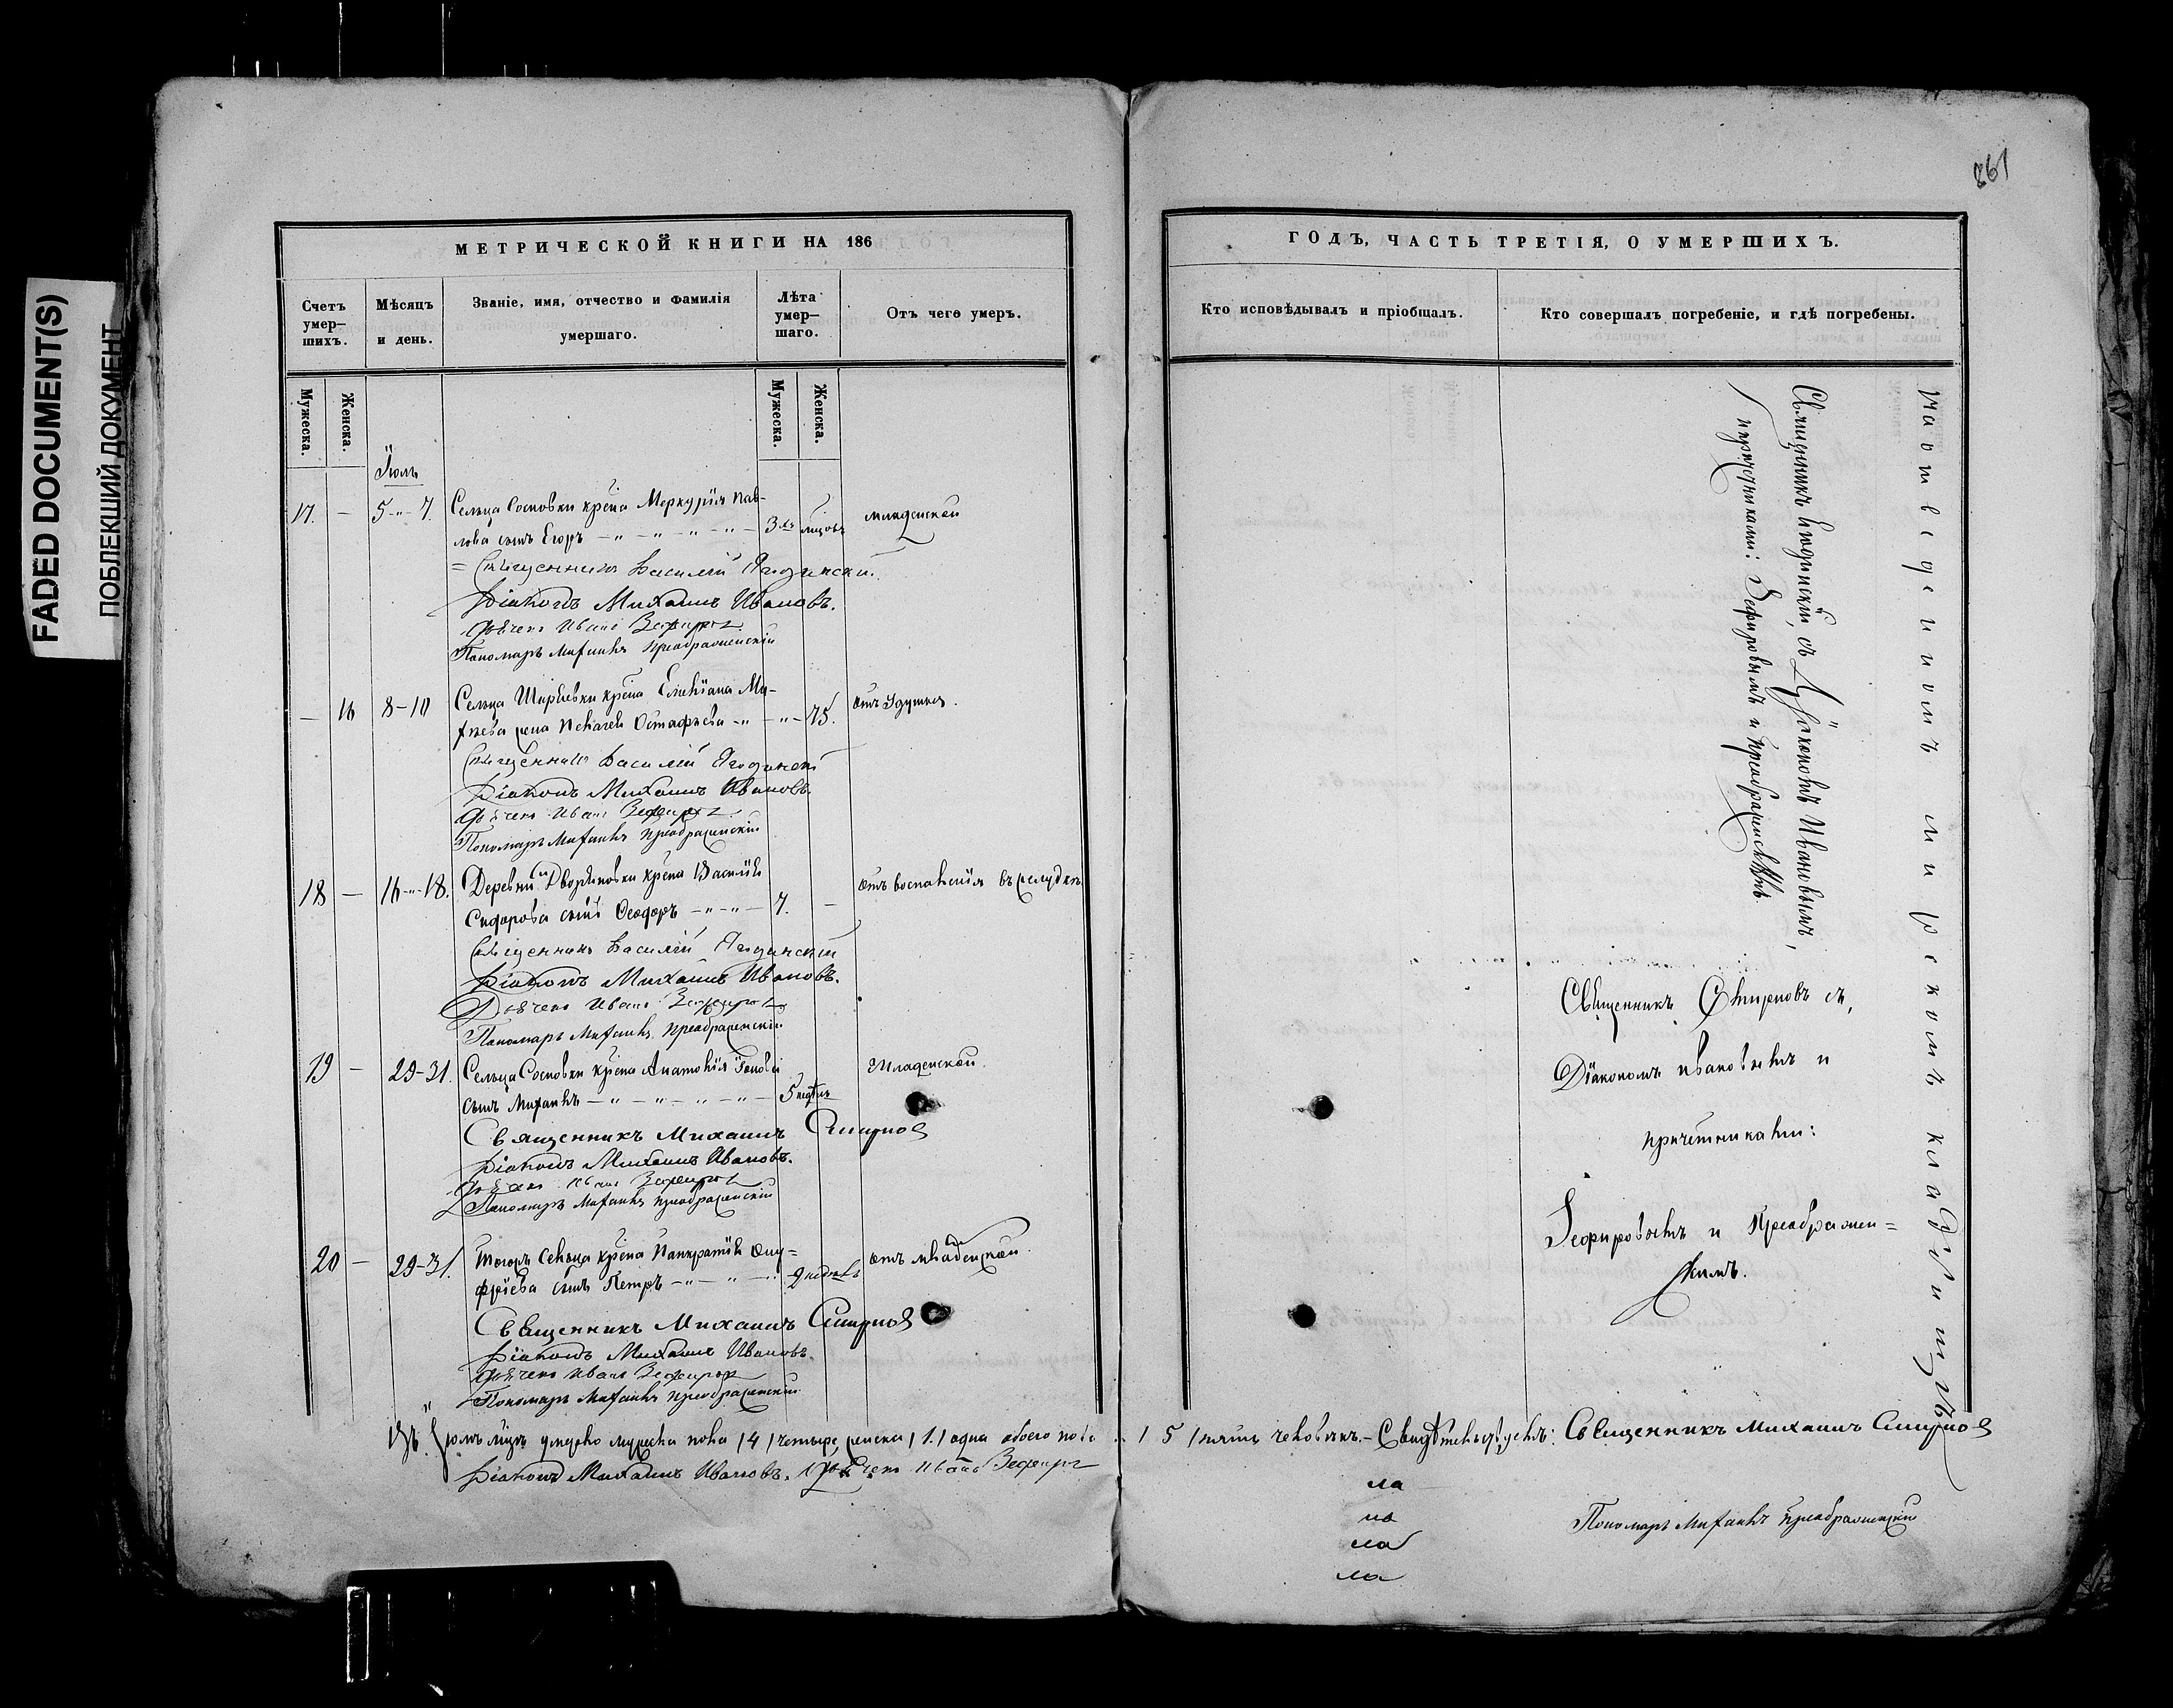 FADED DOCUMENT(S)
ПОБЛЕКШИЙ ДОКУМЕНТ
МЕТРИЧЕСКОЙ КНИГИ НА 186
Счетъ умер-шихъ.
Мѣсяцъ и день.
Званіе, имя, отчество и фамилія умершаго.
Лѣта умер-шаго.
Отъ чего умеръ.
Мужеска.
Женска.
Мужеска.
Женска.
Іюль
17. — 5-"-7. Сельца Сосновки крѣна Меркурія Пав- младенской
лова сынъ Егоръ 3хъ мцовъ
Священникъ Василій Ягодинскій
Діаконъ Михаилъ Ивановъ.
Дьячекъ Иванъ Зефировъ
Пономарь Михаилъ Преображенскій
— 16 8-10 Сельца Ширяевки крѣна Ма- отъ удушья.
жена Пелагея Остафьева 75.
Священникъ Василій Ягодинскій
Діаконъ Михаилъ Ивановъ.
Дьячекъ Иванъ Зефировъ
Пономарь Михаилъ Преображенскій
18 — 16-"-18. Деревни крѣна Василія отъ воспаленія въ желудкѣ
Сидорова сынъ Ѳеодоръ 7. —
Священникъ Василій Ягодинскій
Діаконъ Михаилъ Ивановъ.
Дьячекъ Иванъ Зефировъ
Пономарь Михаилъ Преображенскій
19 — 29-31. Сельца Сосновки крѣна Анатолія младенской.
сынъ Михаилъ 5 недѣль
Священникъ Михаилъ Смирнов
Діаконъ Михаилъ Ивановъ.
Дьячекъ Иванъ Зефировъ
Пономарь Михаилъ Преображенскій
20 — 29-31. Тогожъ Сельца крѣна Панкратія Ону= отъ младенской.
фріева сынъ Петръ недѣль
Священникъ Михаилъ Смирнов
Діаконъ Михаилъ Ивановъ.
Дьячекъ Иванъ Зефировъ
Пономарь Михаилъ Преображенскій
Въ Іюлѣ мцѣ умерло мужеска пола /4/ четыре, женска /1./ одна обоего пола
Діаконъ Михаилъ Ивановъ. Дьячекъ Иванъ Зефировъ
861
ГОДЪ, ЧАСТЬ ТРЕТІЯ, О УМЕРШИХЪ.
Кто исповѣдывалъ и пріобщалъ.
Кто совершалъ погребеніе, и гдѣ погребены.
На отведенномъ мирскомъ кладбищѣ
Священникъ Ягодинскій, съ Діакономъ Ивановымъ,
и причетниками: Зефировымъ и Преображенскимъ
Священникъ Смирновъ съ,
Діакономъ Ивановымъ и
причетниками:
Зефировымъ и Преображен=
скимъ.
/5/ пять человѣкъ.- Свидѣтельствуемъ: Священникъ Михаилъ Смирнов
ла
на
ла
ла
Пономарь Михаилъ Преображенскій